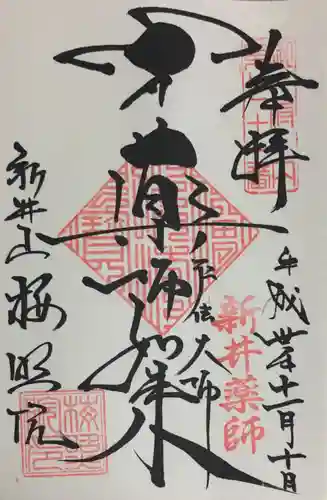 奉拝
平成卅年十一月十日
新井薬師
弘法大師
薬師如来
新井山梅照院